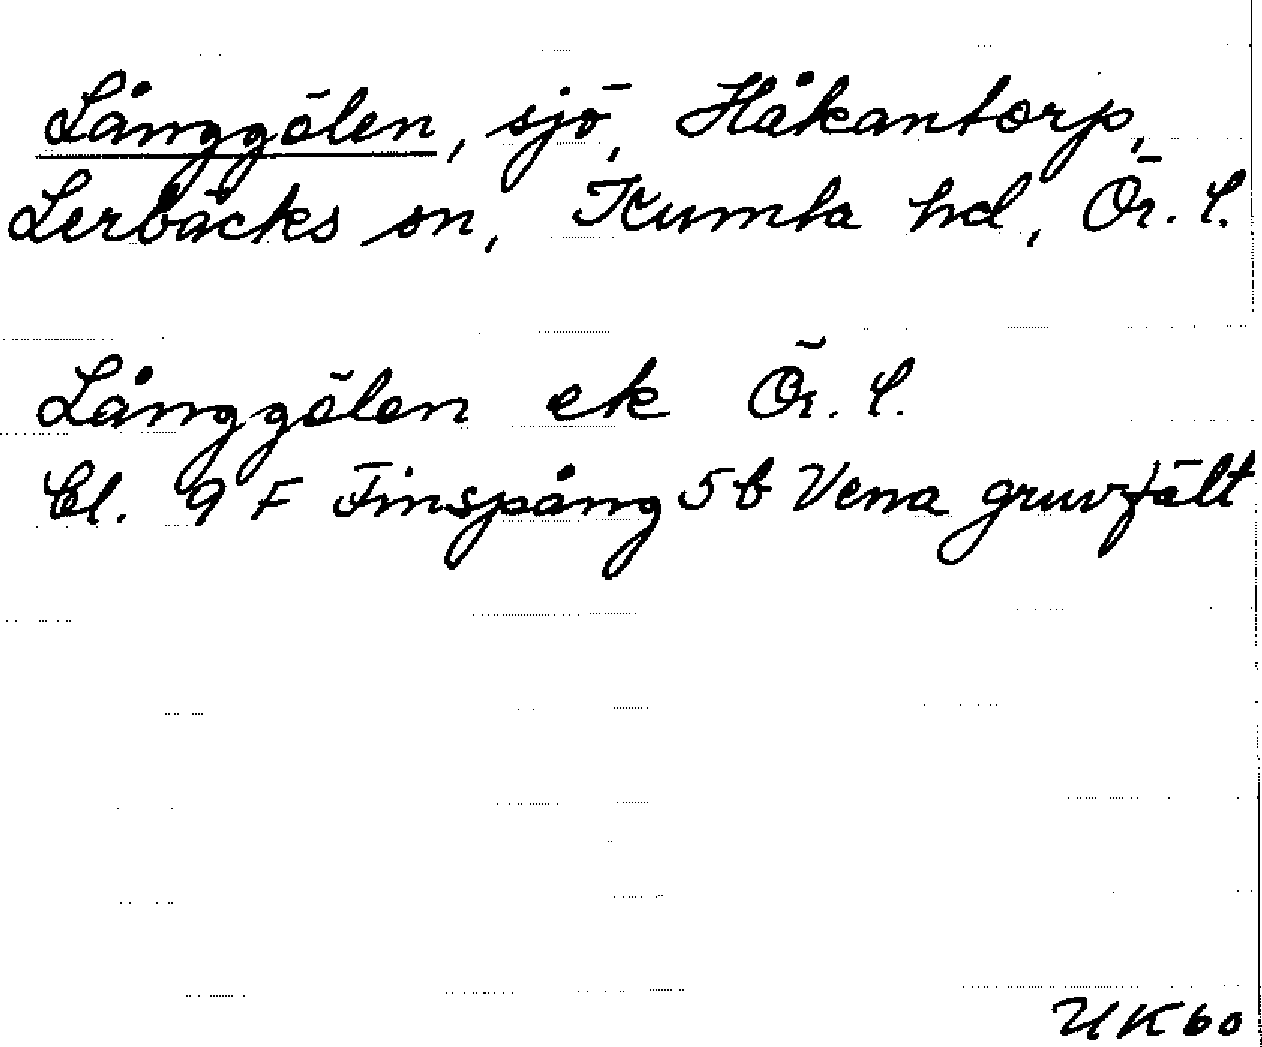 Långgölen, sjö, Håkantorp,
Lerbäcks sn, Kumla hd, Ör. l.
Långgölen ek Ör. l.
Bl. 9 F Finspång 5 b Vena gruvfält
UK 60